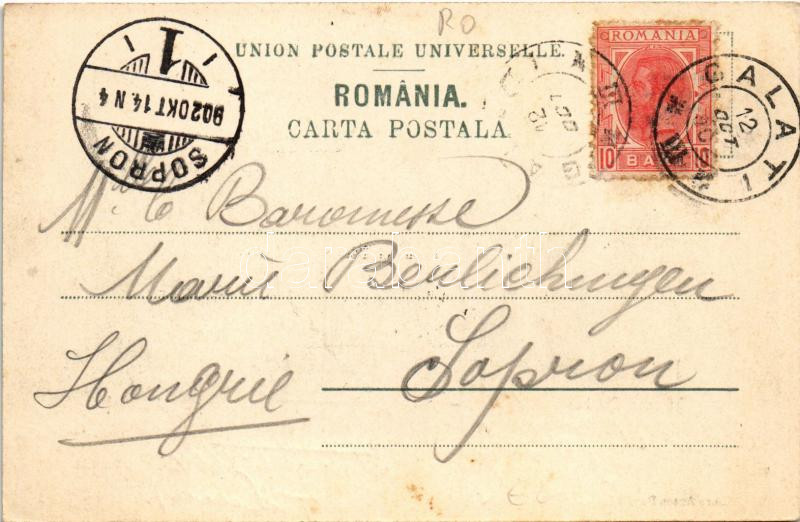 RO
UNION POSTALE UNIVERSELLE.
ROMÂNIA.
CARTA POSTALA
1
902 OKT 14 N 4
SOPRON
ROMANIA
10 BANI 10
GALATI
12 OCT
Baronesse
Marie Berlichingen
Sopron
Hongrie
darabanth